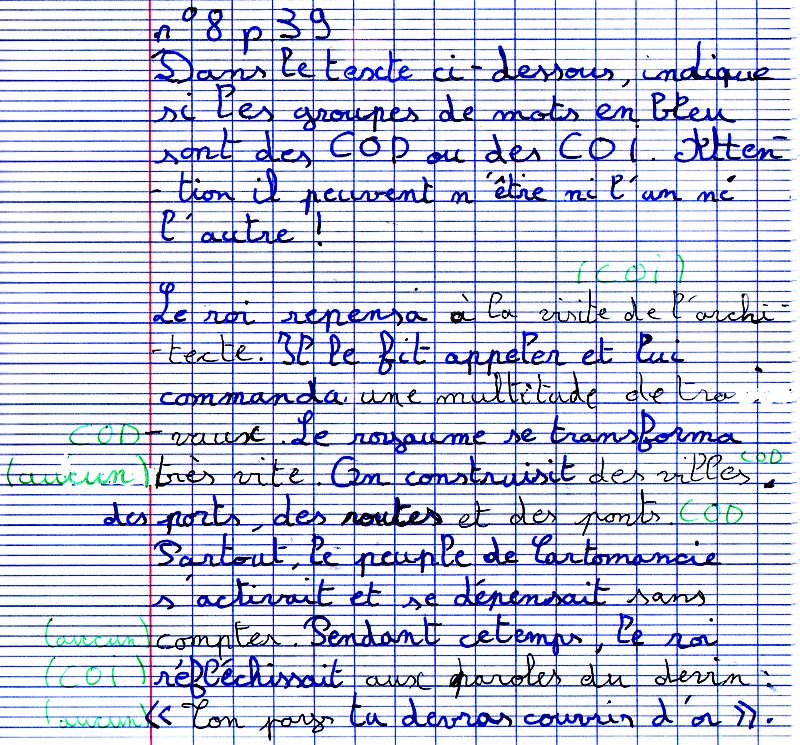 n° 8 p 39
Dans le texte ci-dessous, indique
si les groupes de mots en bleu
sont des COD ou des COi. Atten-
-tion il peuvent n'être ni l'un ni
l'autre !
(COi)
Le roi repensa à la visite de l'archi-
-tecte. Il le fit appeler et lui
commanda une multitude de tra
COD -vaux. Le royaume se transforma
(aucun) très vite. On construisit des villes COD
des ports, des routes et des ponts. COD
Partout, le peuple de Cartomancie
s'activait et se dépensait sans
(aucun) compter. Pendant cetemps, le roi
(COi) réfléchissait aux paroles du devin :
(aucun) « Ton pays tu devras couvrir d'or ».